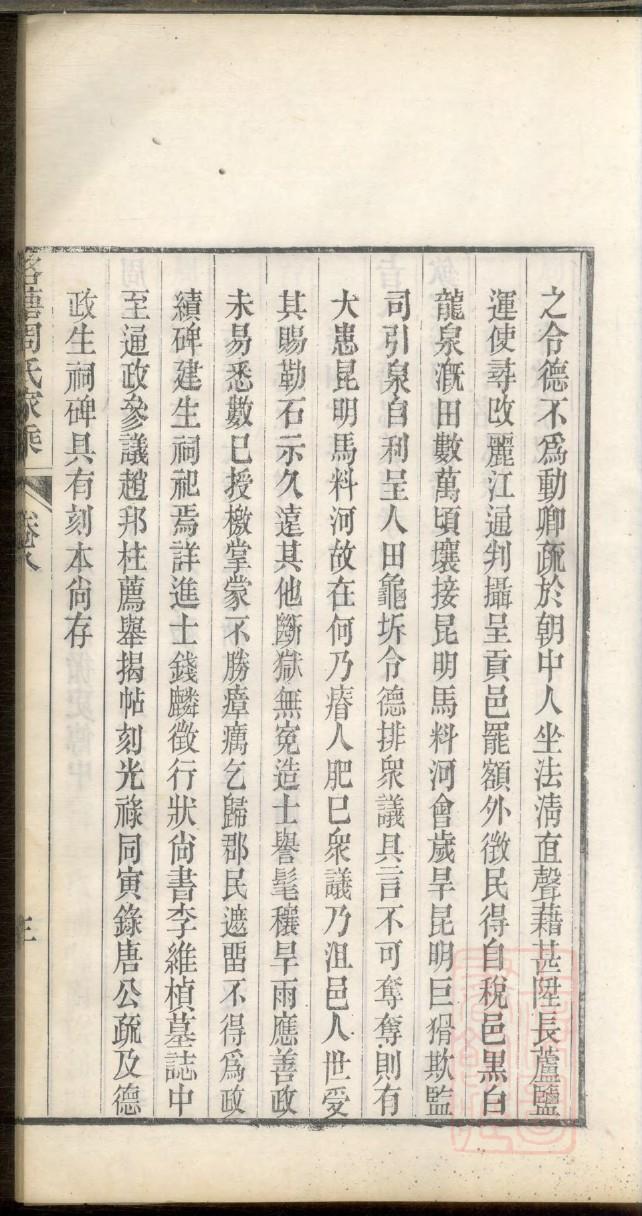 之令德不爲動卿疏於朝中人坐法淸直聲藉甚陞長蘆鹽
運使尋改麗江通判攝呈貢邑罷額外徵民得自稅邑黑白
龍泉漑田數萬頃壤接昆明馬料河會歲旱昆明巨猾欺監
司引泉自利呈人田龜坼令德排衆議具言不可奪奪則有
大患昆明馬料河故在何乃瘠人肥已衆議乃沮邑人世受
其賜勒石示久遠其他斷獄無寃造士譽髦穰旱雨應善政
未易悉數已授檄掌蒙不勝瘴癘乞歸郡民遮畱不得爲政
續碑建生祠祀焉詳進士錢麟徵行狀尙書李維楨墓誌中
至通政參議趙邦柱薦舉揭帖刻光祿同寅錄唐公疏及德
政生祠碑具有刻本尙存
周氏家乘